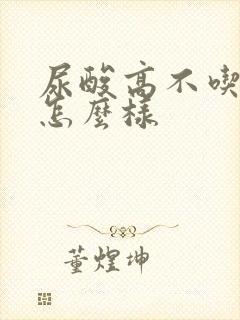 尿酸高不喫
怎麼樣
董煌坤